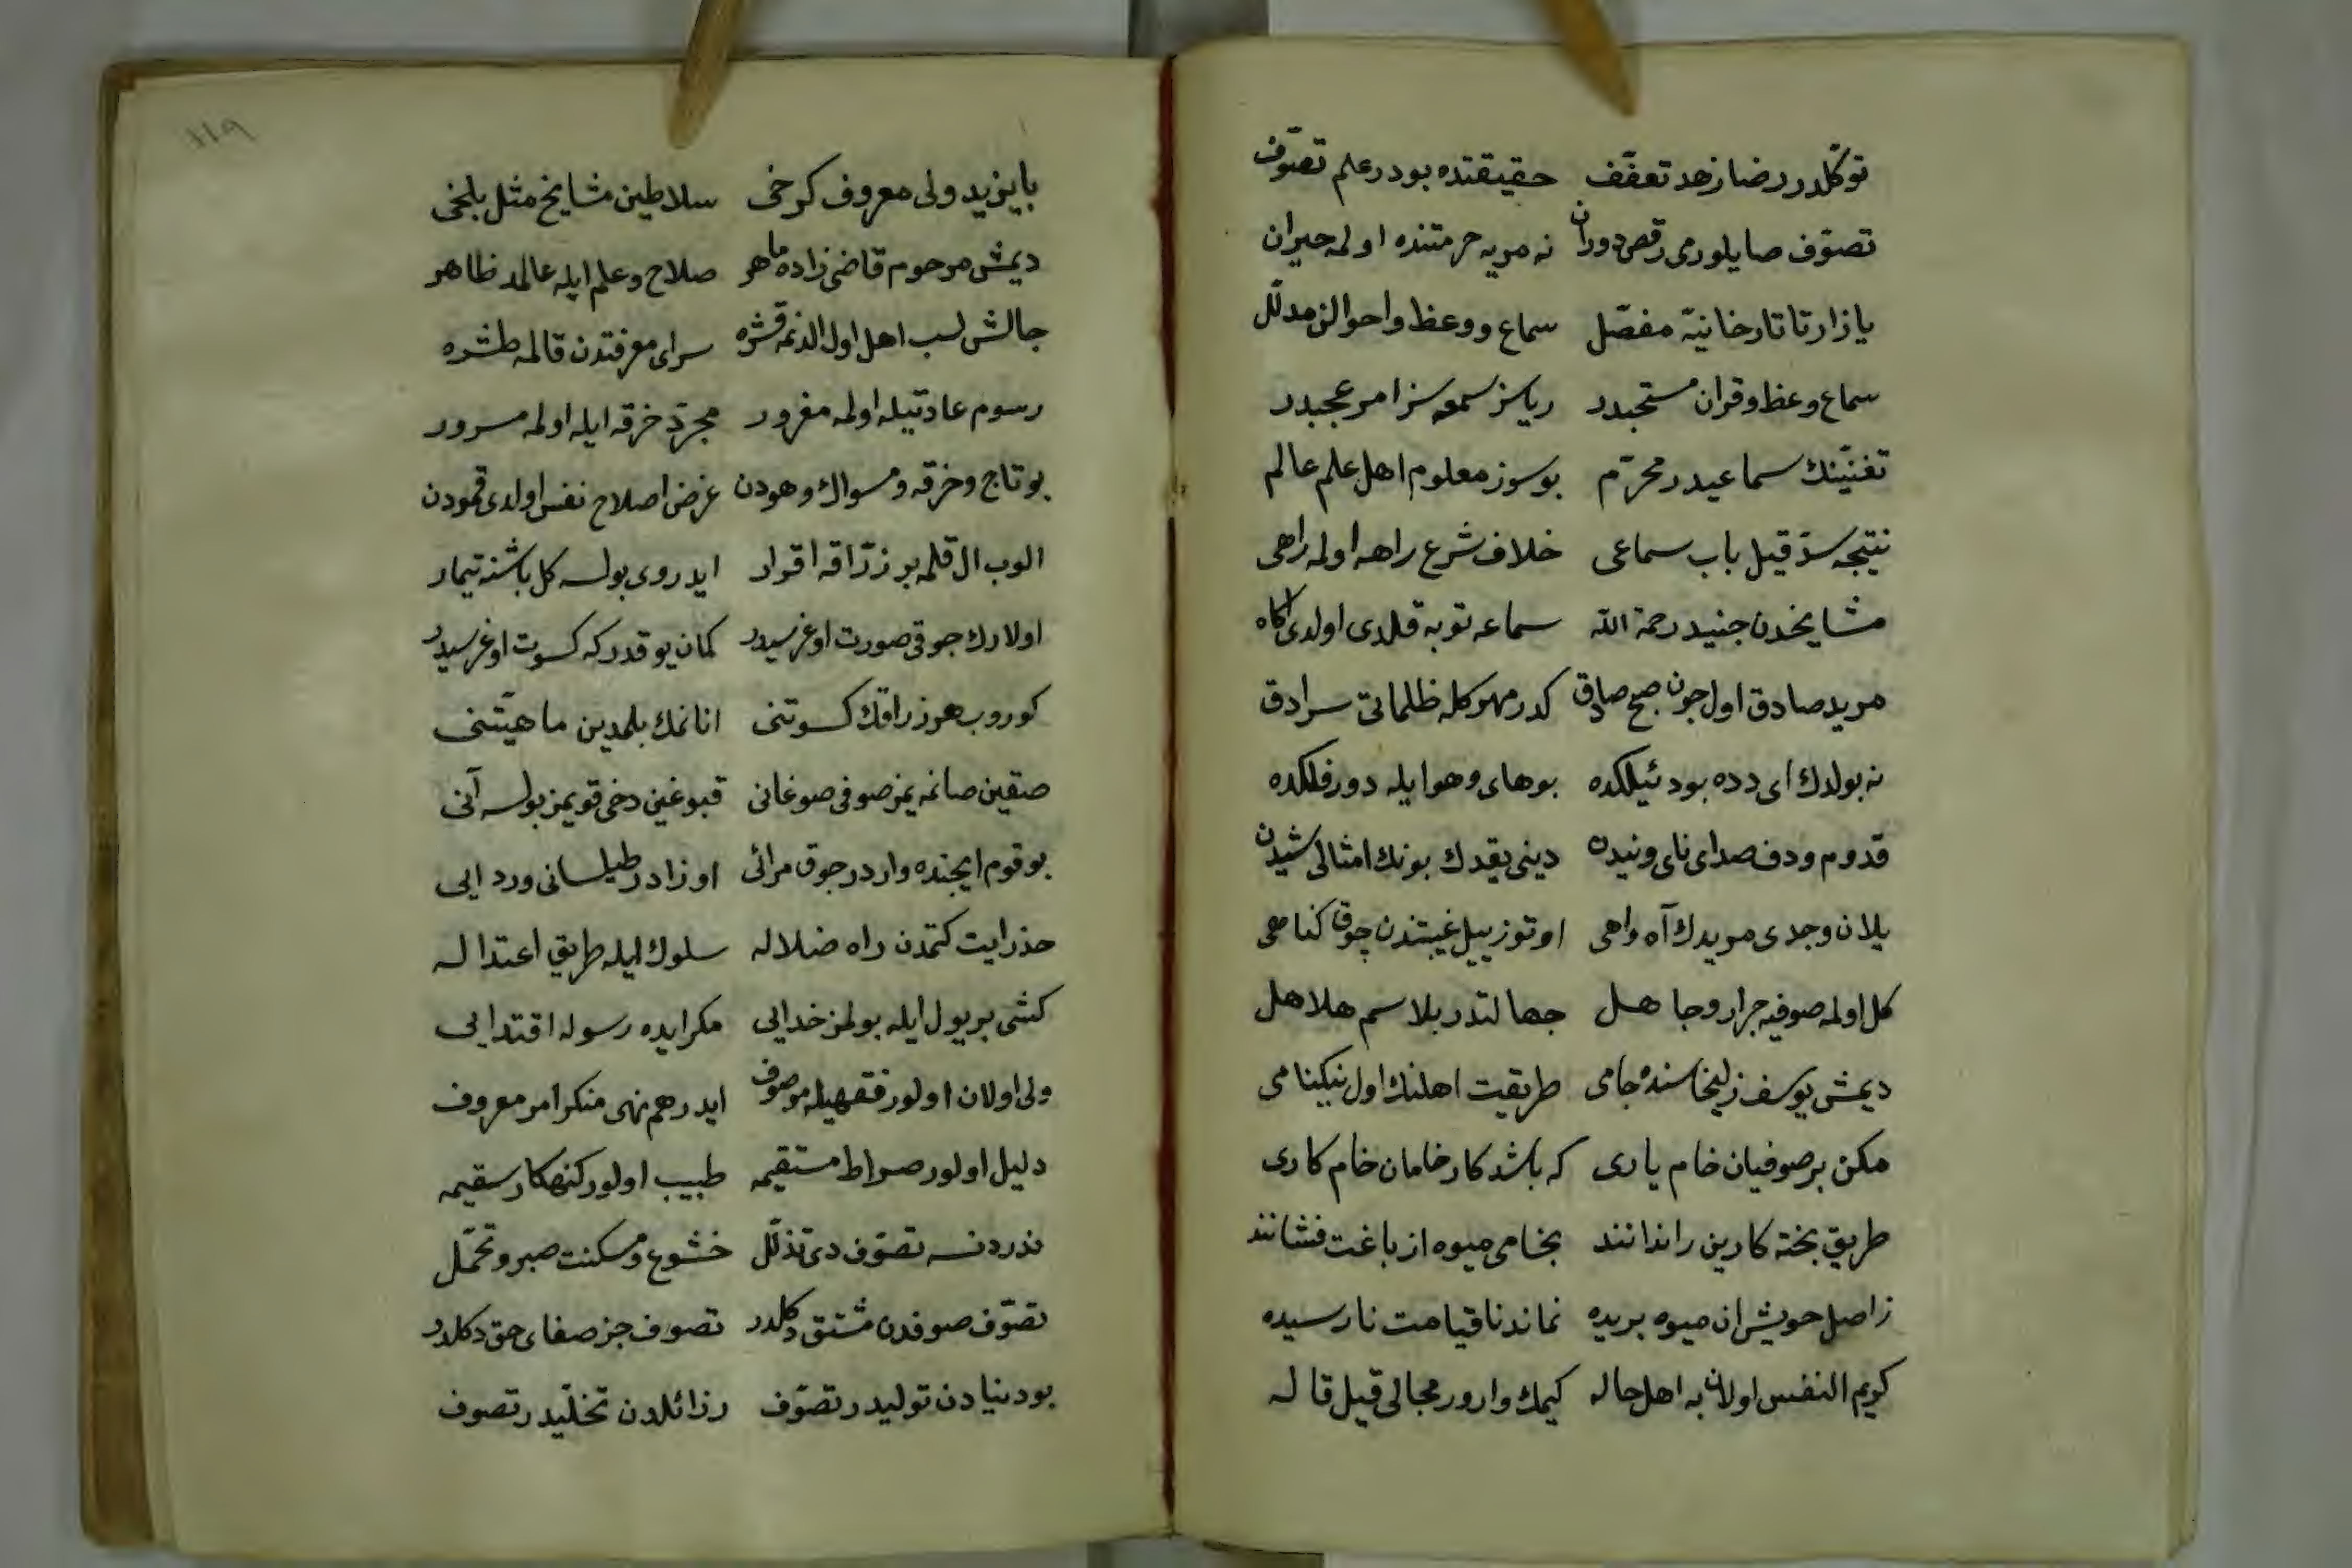 توكّلدر رضا زهد تعفّف حقيقتده بودر علم تصوّف
تصوّف صايلورمى رقص دوران نه مريه حرمتنده اولمه حيران
يازار تاتارخانيّه مفصّل سماع و وعظ واحوالن مدلّل
سماع وعظ وقران مستحبدر رياسز سمعه سز امر عجبدر
تغنيّنك سماعيدر محرّم بو سوز معلوم اهل علم عالم
نتيجه سدّ قيل باب سماعى خلاف شرع راهه اولمه راهى
مشايخدن جنيد رحمة الله سماعه توبه قلدى اولدى آكاه
مريد صادق اول جون صبح صادق كدر مهر كله ظلماتى سرادق
نه بولدك اى دده بو دئيلكده بو هاى وهو ايله دور فلكده
قدوم ودف صداى ناى ونيدن دينى يقدك بونك امثالى شيدن
يلان وجدى مريدك آه واهى اوتوز ييل غيبتدن چوق كناهى
كل اولمه صوفيه جرار وجاهل جهالتدر بلا سم هلاهل
ديمش يوسف زليخاسنده جامى طريقت اهلنك اول نيكنامى
مكن بر صوفيان خام يارى كه باشد كار خامان خام كارى
طريق پخته كارين را ندانند بخامى ميوه از باغت فشانند
ز اصل خويش ان ميوه بريده نماند تا قيامت نارسيده
كريم النفس اولان به اهل حاله كيمك وارور مجالى قيل قاله
١١٩
بايزيد ولى معروف كرخى سلاطين مشايخ مثل بلخى
ديمش مرحوم قاضى زاده ماهر صلاح وعلم ايله عالمد ظاهر
جالش لب اهل اول الدنمه قشره سراى معرفتدن قالمه طشره
رسوم عادتيله اولمه مغرور مجرّد خرقه ايله اولمه مسرور
بو تاج وخرقه ومسواك وهودن غرض اصلاح نفس اولدى قمودن
الوب ال قلمه بر زرّاقه اقرار ايدر وى بولسه كل باشنه تيمار
اولارك جوقى صورت اوغريسيدر كمان يوقدر كه كسوت اوغريسيدر
كوروب هر زراقك كسوتنى انانمك بلمدين ماهيّتنى
صقين صانمه يمز صوفى صوغانى قبوغين دخى قويمز بولسه آنى
بو قوم ايچنده واردر جوق مرائى اوزادر طيلسانى وردايى
حذر ايت كتمدن راه ضلاله سلوك ايله طريق اعتداله
كشى بر يول ايله بولمز خدايى مكر ايده رسوله اقتدايى
ولى اولان اولور فقهيله موصوف ايدر هم نهى منكر امر معروف
دليل اولور صراط مستقيمه طبيب اولور كنهكار سقيمه
ندر دنسه تصوّف دى تذلّل خشوع ومسكنت صبر وتحمّل
تصوّف صوفدن مشتق دكلدر تصوف جز صفاى حق دكلدر
بو دنيادن تولّيدر تصوّف رزائلدن تخلّيدر تصوف